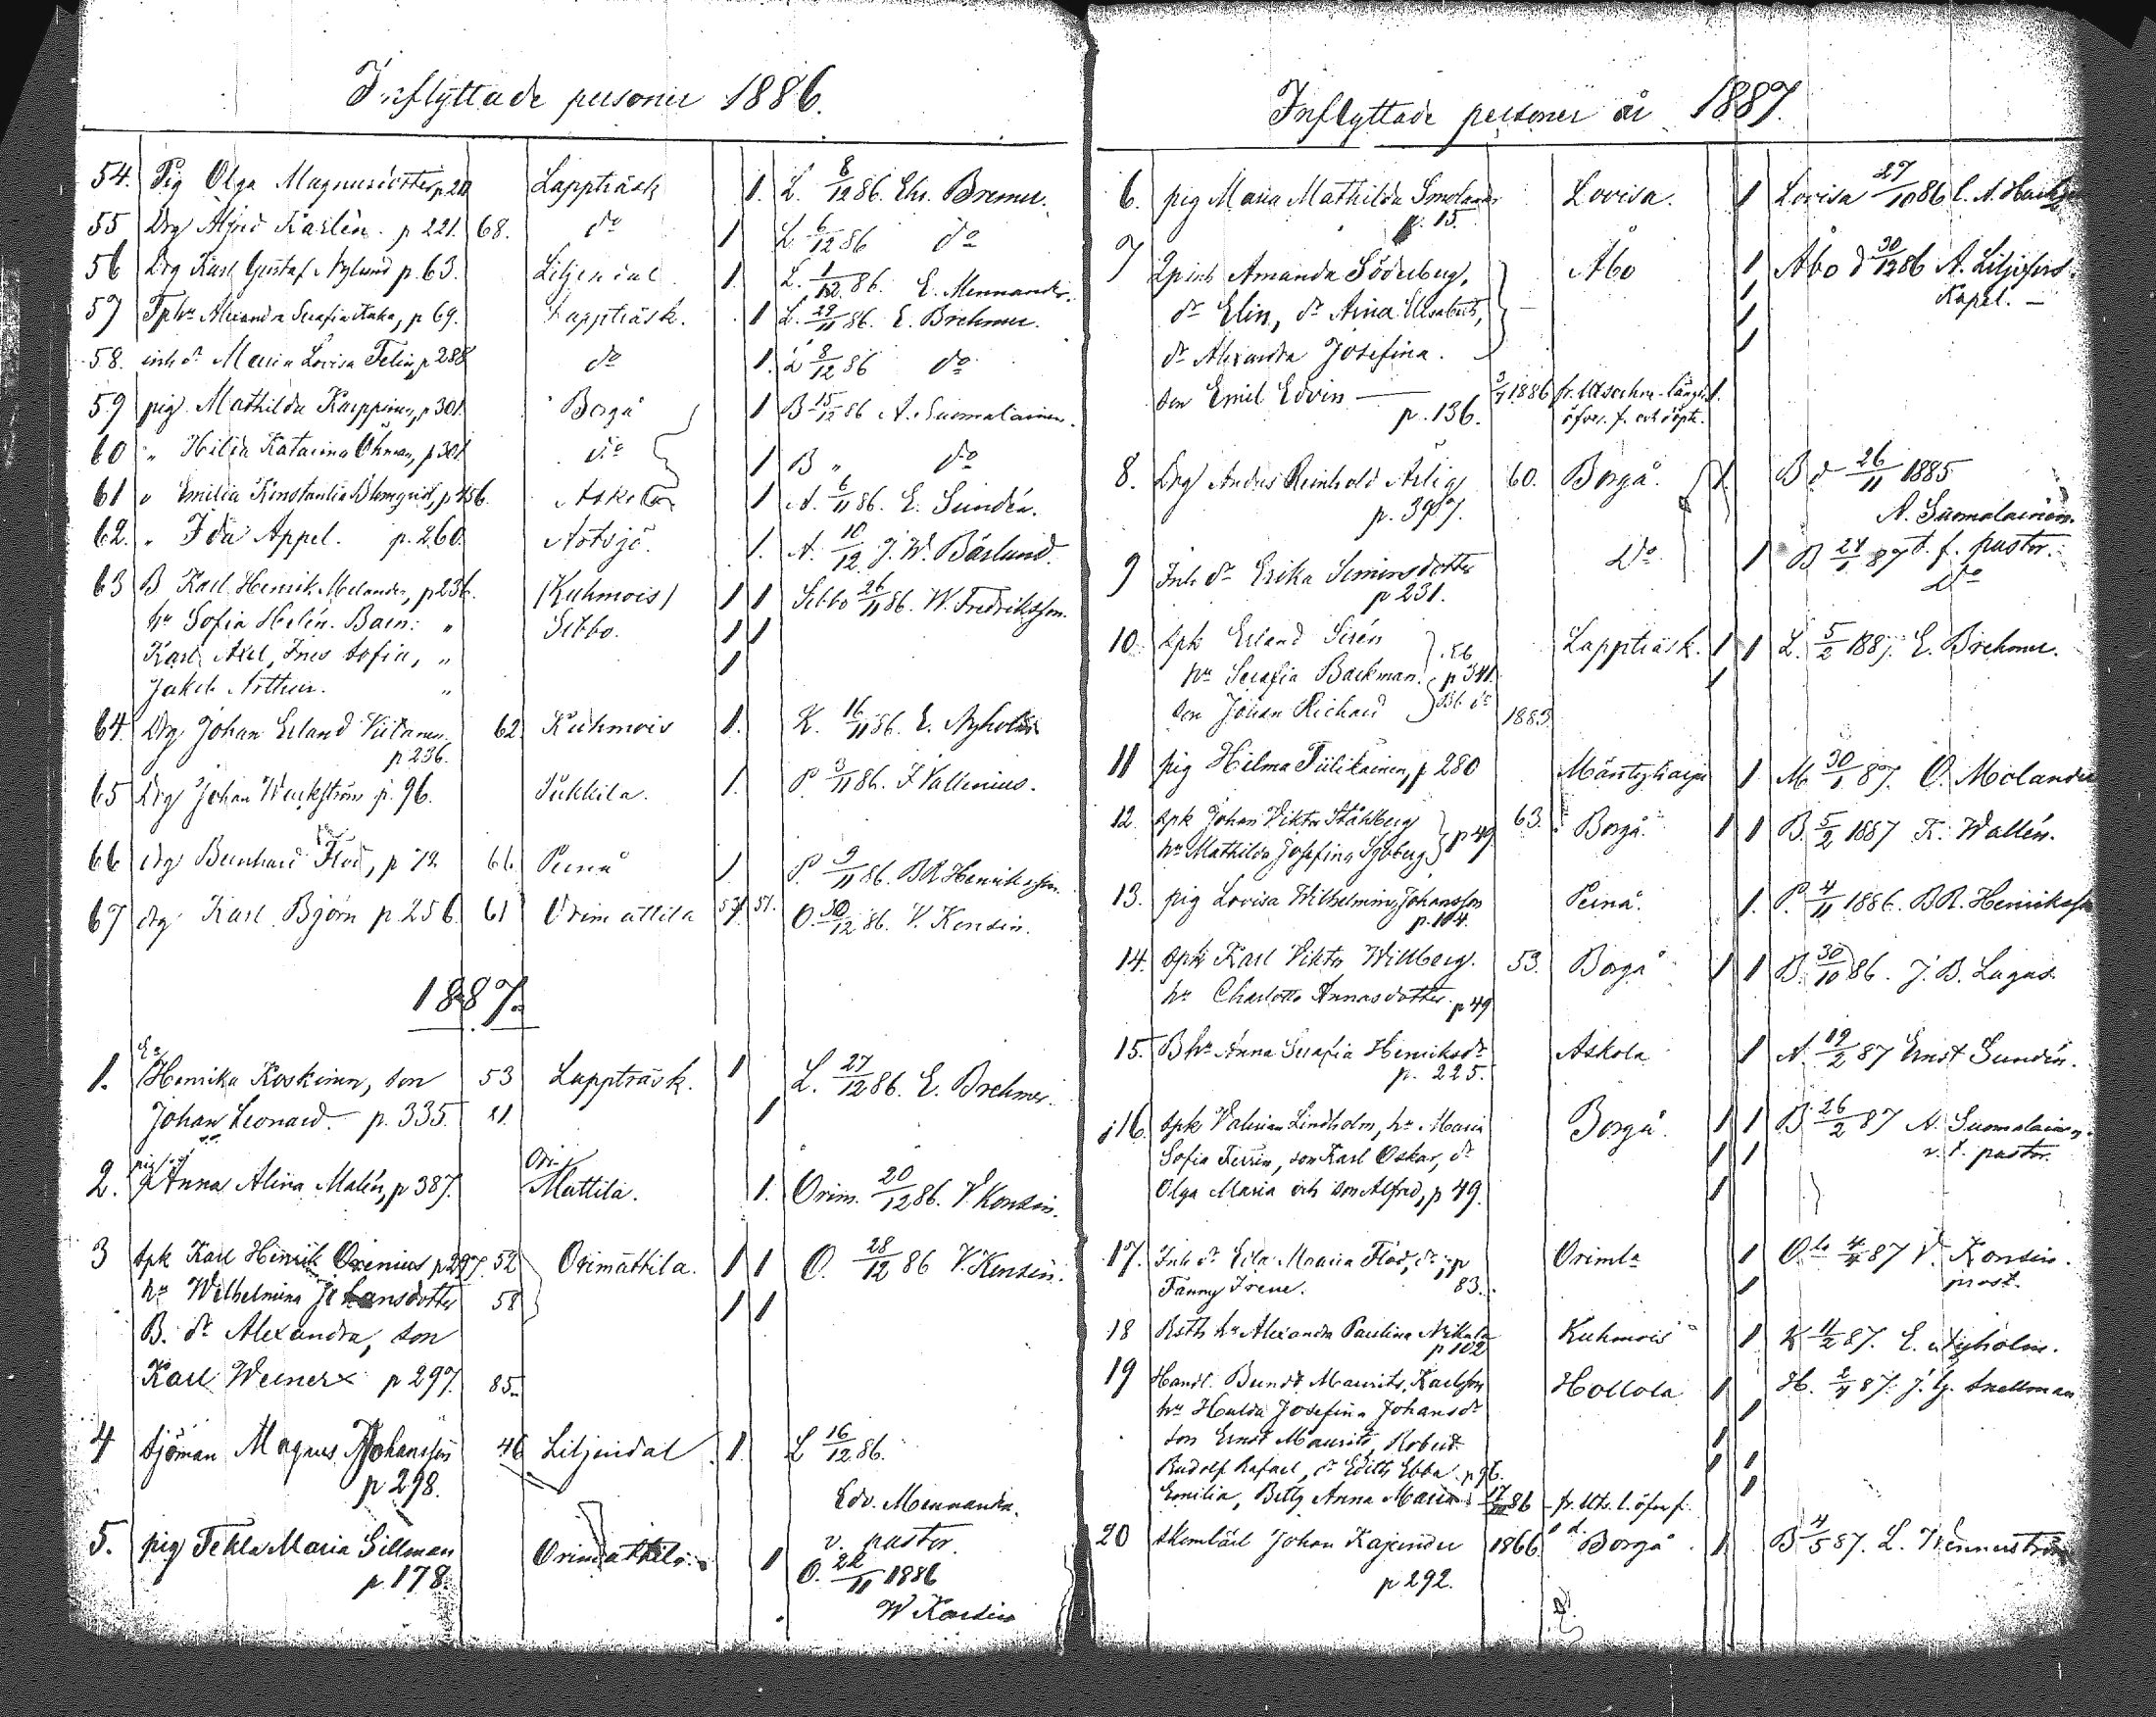 Inflyttade personer 1886.
54. Pig Olga Magnusdotter p 210 Lappträsk 1. L. 8/12 86. Chr. Bremer.
55 Drg Alfred Karlén. p 221. 68. do 1 L. 6/12 86 do
56 Drg Karl Gustaf Nylund p. 63. Liljendal 1. L. 1/12. 86. E. Mennander.
57 Tphu Alexandra Serafia Kaka, p 69. Lappträsk. 1 L. 29/11 86. E. Brehmer.
58. inh dr Maria Lovisa Felin p 288 do 1. L 8/12 86 do
59 pig. Mathilda Karppinen, p 301. Borgå 1 B 15/12 86 A. Suomalainen.
60 " Hilda Katarina Öhman, p 301. do 1 B " do
61 " Emilia Konstantia Blomqvist, p 456. Askola 1 A. 6/11 86. E. Sundén.
62. " Ida Appel. p. 260. Artsjö. 1. A. 10/12 J. W. Bärlund.
63 B Karl Henrik Melander, p 236. /Kuhmois/ 1 1 Sibbo 26/11 86. W. Fredriksson.
hu Sofia Helén. Barn: " Sibbo. 1 1
Karl Axel, Ines Sofia, " 1
Jakob Arthur. "
64. Drg Johan Erland Viitanen. 62 Kuhmois 1. K. 16/11 86. E. Nyholm
p 236.
65 Drg Johan Weckström p. 96. Pukkila. 1. P. 3/11 86. F Vallenius.
66 drg Bernhard Flod, p 72. 66. Pernå 1 P. 9/11 86. B R Henriksson.
67 drg Karl Björn p. 256. 61 Orimattila 57. 57. O. 30/12 86. V. Konsin.
1887.
1. Henrika Koskinen, son 53 Lappträsk. 1 L. 27/12 86. E. Brehmer.
Johan Leonard. p. 335. 1
pig
2. Anna Alina Malén, p 387. Ori-
Mattila. 1. Orim. 20/12 86. V. Konsin.
3 spk Karl Henrik Oxenius p 297. 52 Orimattila. 1 1 O. 28/12 86 V. Konsin.
hu Wilhelmina Johansdotter 58 1 1
B. dr Alexandra, son
Karl Werner p 297. 85.
4 sjöman Magnus Johansson 46 Liljendal 1. L 16/12 86.
p 298. Edv. Mennander.
v. pastor.
5. pig Tekla Maria Sillman Orimattila. 1 O. 22/11 1886
p. 178. W Konsin
Inflyttade personer år 1887.
6. pig Maria Mathilda Smolander Lovisa. 1 Lovisa 27/10 86
p. 15.
7 Amanda Söderberg, Åbo 1 Åbo d 30/12 86 A. Liljefors
dr Elin, dr Aina Elisabeth, 1 Kapel. —
dr Alexandra Josefina. 1
son Emil Edvin — 1886 fr. Utsockne-längd. 1.
p. 136. öfver f. och döpte.
8. Drg Anders Reinhold Ärlig 60. Borgå. 1. B d 26/11 1885
p. 397. A. Suomalainen.
t. f. pastor.
9 Inh dr Erika Simonsdotter Do. 1 B 24/1 87
p 231. Do
10. spk Erland Sirén Lappträsk. 1 1 L. 5/2 1887. E. Brehmer.
hu Serafia Backman. p 341. 1
son Johan Richard 1883.
11 pig Hilma Tiilikainen, p 280 Mäntyharju 1 M 30/1 87. O. Molander
12. spk Johan Viktor Ståhlberg p 49 63. Borgå. 1 1 B. 5/2 1887 K. Wallén.
hu Mathilda Josefina Sjöberg
13. pig Lovisa Wilhelmina Johansson Pernå. 1. P. 4/11 1886. B R. Henriksson
p. 104.
14. spk Karl Viktor Willberg. 53. Borgå 1 1 B. 30/10 86. J. B. Lagus.
hu Charlotta Annasdotter. p 49
15. B hu Anna Serafia Henriksdr Askola 1 A. 19/2 87 Ernst Sundén.
p. 225.
16. spk Valerian Lindholm, hu Maria Borgå. 1 1 B 26/2 87 A. Suomalainen.
Sofia Ferrin, son Karl Oskar, dr 1 1 v. t. pastor.
Olga Maria och son Alfred, p 49. 1
17. Inh dr Eila Maria Flod, dr p Orimla 1 O.la 4/4 87 V. Konsin.
Fanny Irene. 83. 1 prost.
18 hu Alexandra Paulina Nikula Kuhmois 1. K 11/2 87. E. Nyholm.
p 102
19 Handl. Berndt Maurits Karlsson Hollola 1 H. 2/4 87. J. G. Snellman
hu Hulda Josefina Johansdr 1
son Ernst Maurits, Robert 1
Rudolf Rafael, dr Edith Ebba p 96. 1 1
Emilia, Betty Anna Maria 86 fr. Uts. l. öfver f. 1
20 skomlärl Johan Kajander 1866 Borgå 1. B 4/5 87. L. Wennerström
p 292.